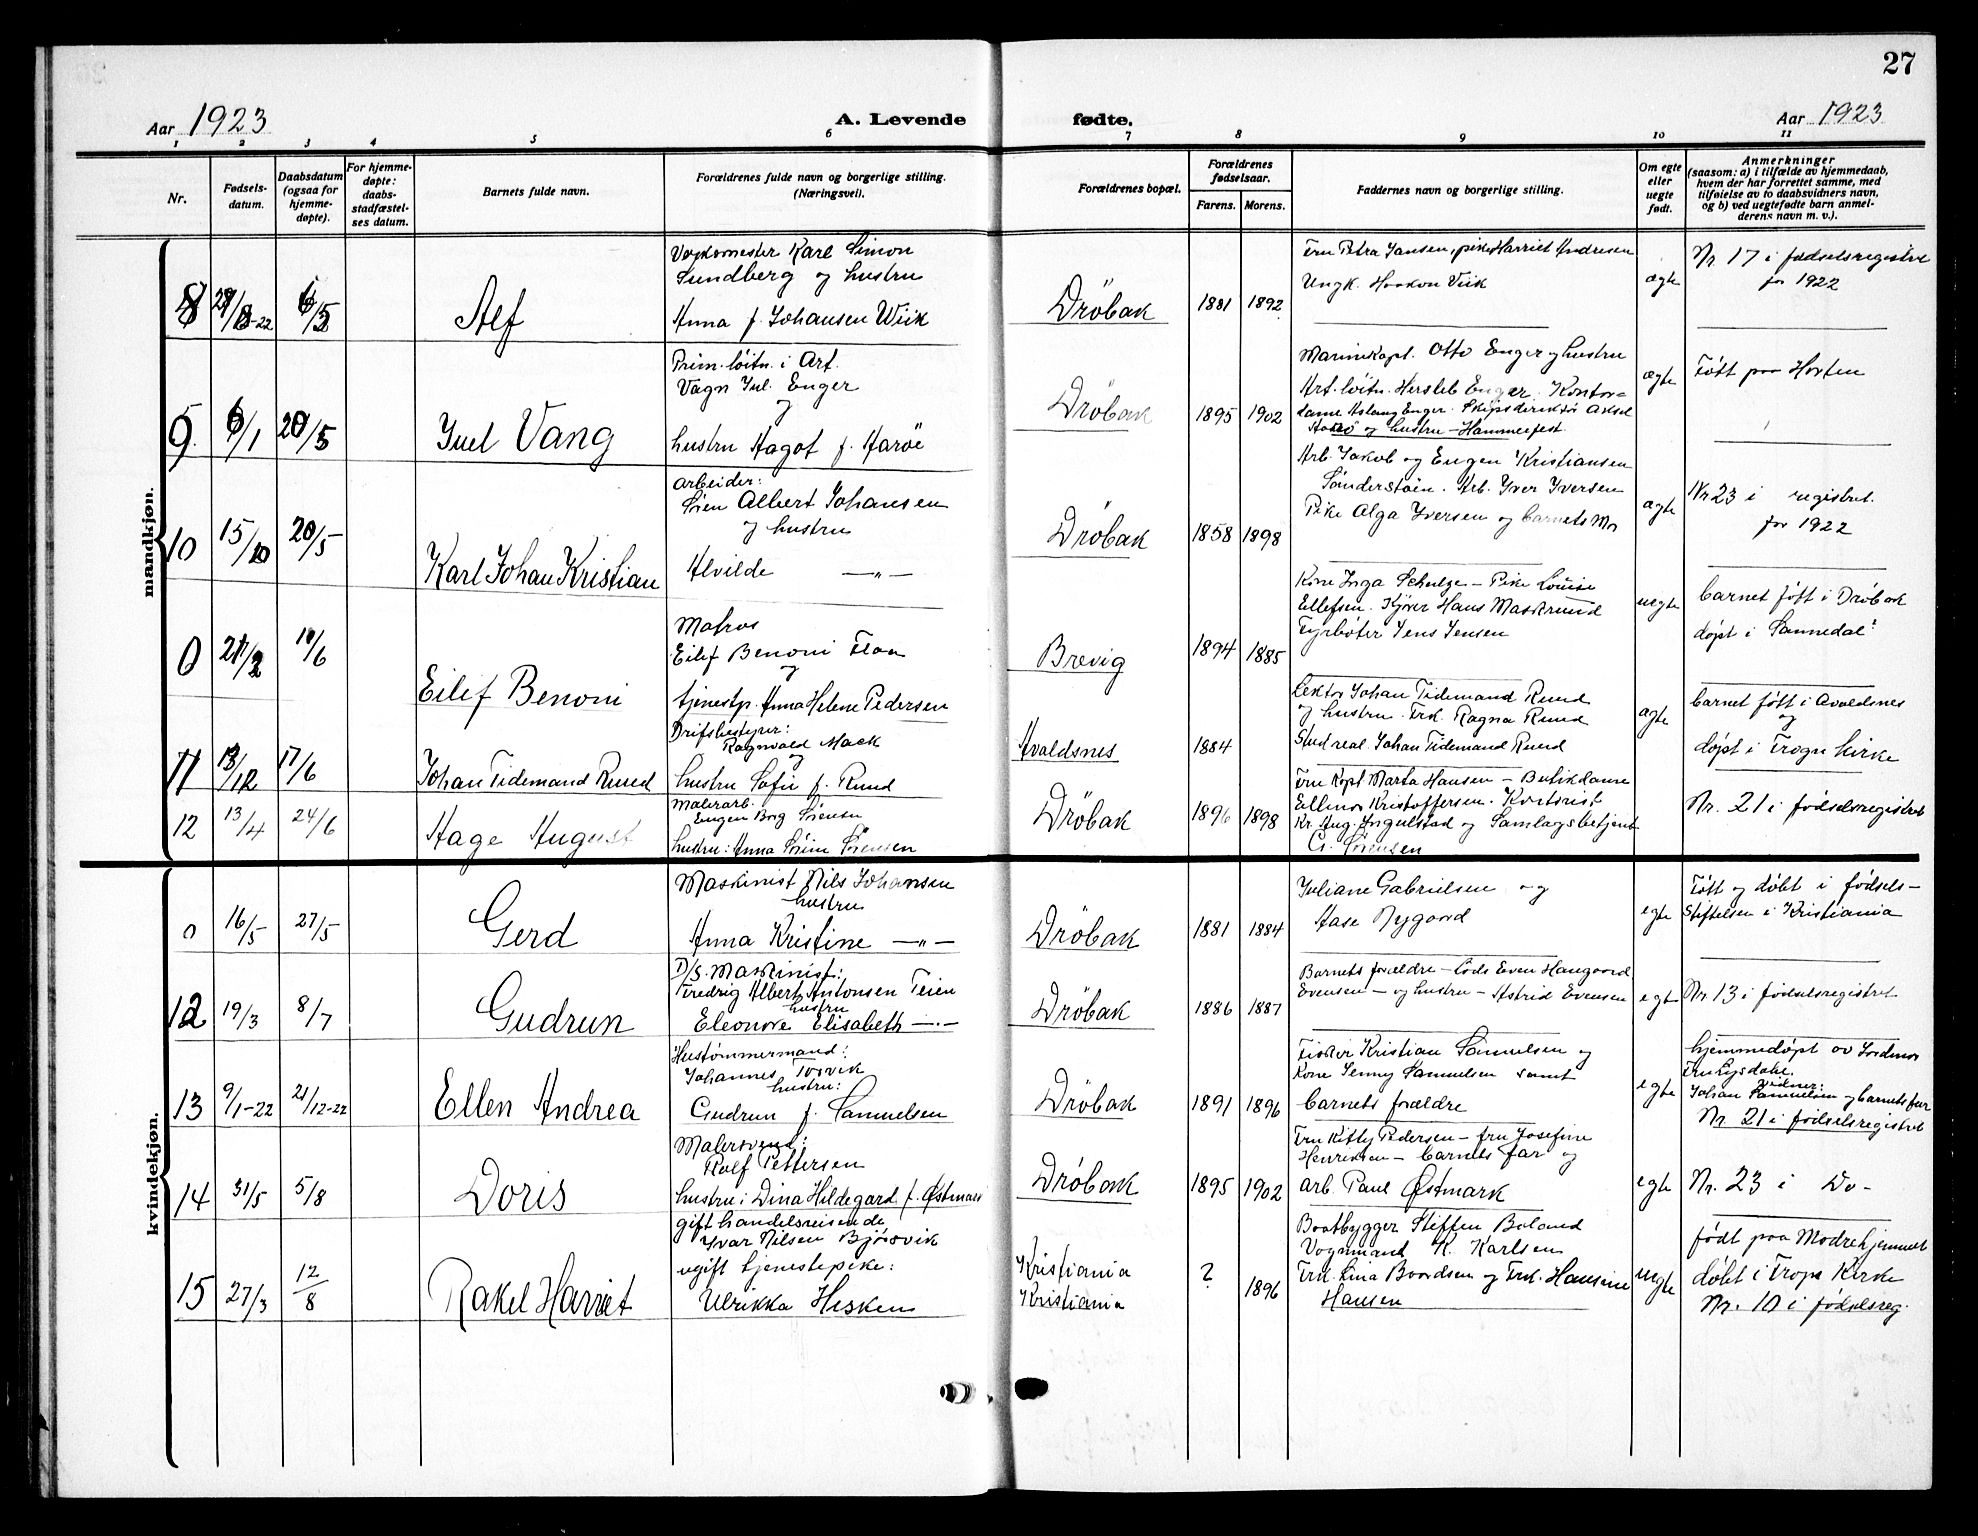 27
Aar 1923
A. Levende fødte.
Aar 1923
1 2 3 4 5 6 7 8 9 10 11
Nr.
Fødsels-
datum.
Daabsdatum
(ogsaa for
hjemme-
døpte).
For hjemme-
døpte:
daabs-
stadfæstel-
ses datum.
Barnets fulde navn.
Forældrenes fulde navn og borgerlige stilling.
(Næringsvei).
Forældrenes bopæl.
Forældrenes
fødselsaar.
Farens. Morens.
Faddernes navn og borgerlige stilling.
Om egte
eller
uegte
født.
Anmerkninger
(saasom: a) i tilfælde av hjemmedaab,
hvem der har forrettet samme, med
tilføielse av to daabsvidners navn,
og b) ved uegtefødte barn anmel-
derens navn m. v.).
mandkjøn.
8
Alf
Karl Simon
Sundberg og hustru
Anna f. Johansen Wiik
Dröbak
1881 1892
Fru Petra Jansen, pike Harriet Andresen
Ungk. Haakon Viik
ægte
Nr. 17 i fødselsregistret
for 1922
9. 6/1 20/5
Juel Vang
Prem. löitn. i Art.
Vagn Jul. Enger
og
hustru Aagot f. Aaröe
Dröbak
1895 1902
Marinekapt. Otto Enger og hustru
Art. löitn. Hersleb Enger. Kontor=
dame Aslaug Enger. Skipsdirektör Aksel
og hustru - Hammerfest
ægte
Föft paa Horten
10 15/10 20/5
Karl Johan Kristian
Arbeider:
Sören Albert Johansen
og hustru
Alvilde —"—
Dröbak
1858 1898
Arb. Jakob og Eugen Kristiansen
Sönderstöen. Arb. Yver Yversen
Pike Alga Yversen og barnets Mo
ægte
Nr 23 i registret
for 1922
0 10/6
Eilif Benoni
Matros
Eilif Benoni Flaa
og
tjenestp. Anna Helene Pedersen
Brevig
1894 1885
Kone Inga Schulze - Pike Louise
Ellefsen. Kjører Hans Maskrud
Fyrböter Jens Jensen
uegte
barnet föft i Dröbak
döpt i Sannedal
11 13/12 17/6
Johan Tidemand Ruud
Drifsbestyrer:
Ragnvald Mack
og
hustru Sofie f. Ruud
Avaldsnes
1884
Lektor Johan Tidemand Ruud
og hustru. Frk. Ragna Ruud
Stud real. Johan Tidemand Ruud
ægte
barnet föft i Avaldsnes
og
döpt i Frogn kirke
12 13/4 24/6
Aage August
Malerarb.
Eugen Borg Sörensen
hustru: Anna Sörine Sörensen
Dröbak
1896 1898
Fru Kapt Marta Hansen - Butikdame
Ellinor Kristoffersen. Kontorist
Kr. Aug. Ingulstad og Samlagsbetjent
G. Sörensen
Nr. 21 i fødselsregistret
kvindekjøn.
0 16/5 27/5
Gerd
Maskinist Nils Johansen
hustru
Anna Kristine —"—
Dröbak
1881 1884
Juliane Gabrielsen og
Aase Nygaard
egte
Föft og döbt i födsels-
stiftelsen i Kristiania
12 19/3 8/7
Gudrun
D/S. Maskinist:
Fredrig Albert Antonsen Teien
hustru
Eleonore Elisabeth —"—
Dröbak
1886 1887
Barnets forældre - Lods Even Haugaard
Evensen - og hustru - Astrid Evensen
egte
Nr. 13 i fødselsregistret
13 9/1-22 21/12-22
Ellen Andrea
Hustömmermand:
Johannes Torvik
hustru:
Gudrun f. Samuelsen
Dröbak
1891 1896
Fisker Kristian Samuelsen og
Kone Jenny Samuelsen samt
barnets forældre
egte
hjemmedöpt av Jordmor
Fru Lysdahl.
vidner:
Johan Samuelsen og barnets far
Nr. 21 i fødselsregistret
14 31/5 5/8
Doris
Malersvend:
Rolf Pettersen
hustru: Dina Hildegard f. Østmark
Dröbak
1895 1902
Fru Kitty Pedersen - fru Josefine
Henriksen - barnets far og
arb. Paul Østmark
egte
Nr. 23 i Do-
15 27/3 12/8
Rakel Harriet
gift handelsreisende
Yvar Nilsen Bjørsvik
ugift tjenestepike:
Ulrikka Hesken
Kristiania
Kristiania
? 1896
Baatbygger Steffen Boland
Vognmand K. Karlsen
Frk. Lina Baardsen og Frk. Hansine
Hansen
uegte
født paa Mødrehjemmet
döbt i Frogn Kirke
Nr. 10 i fødselsreg.